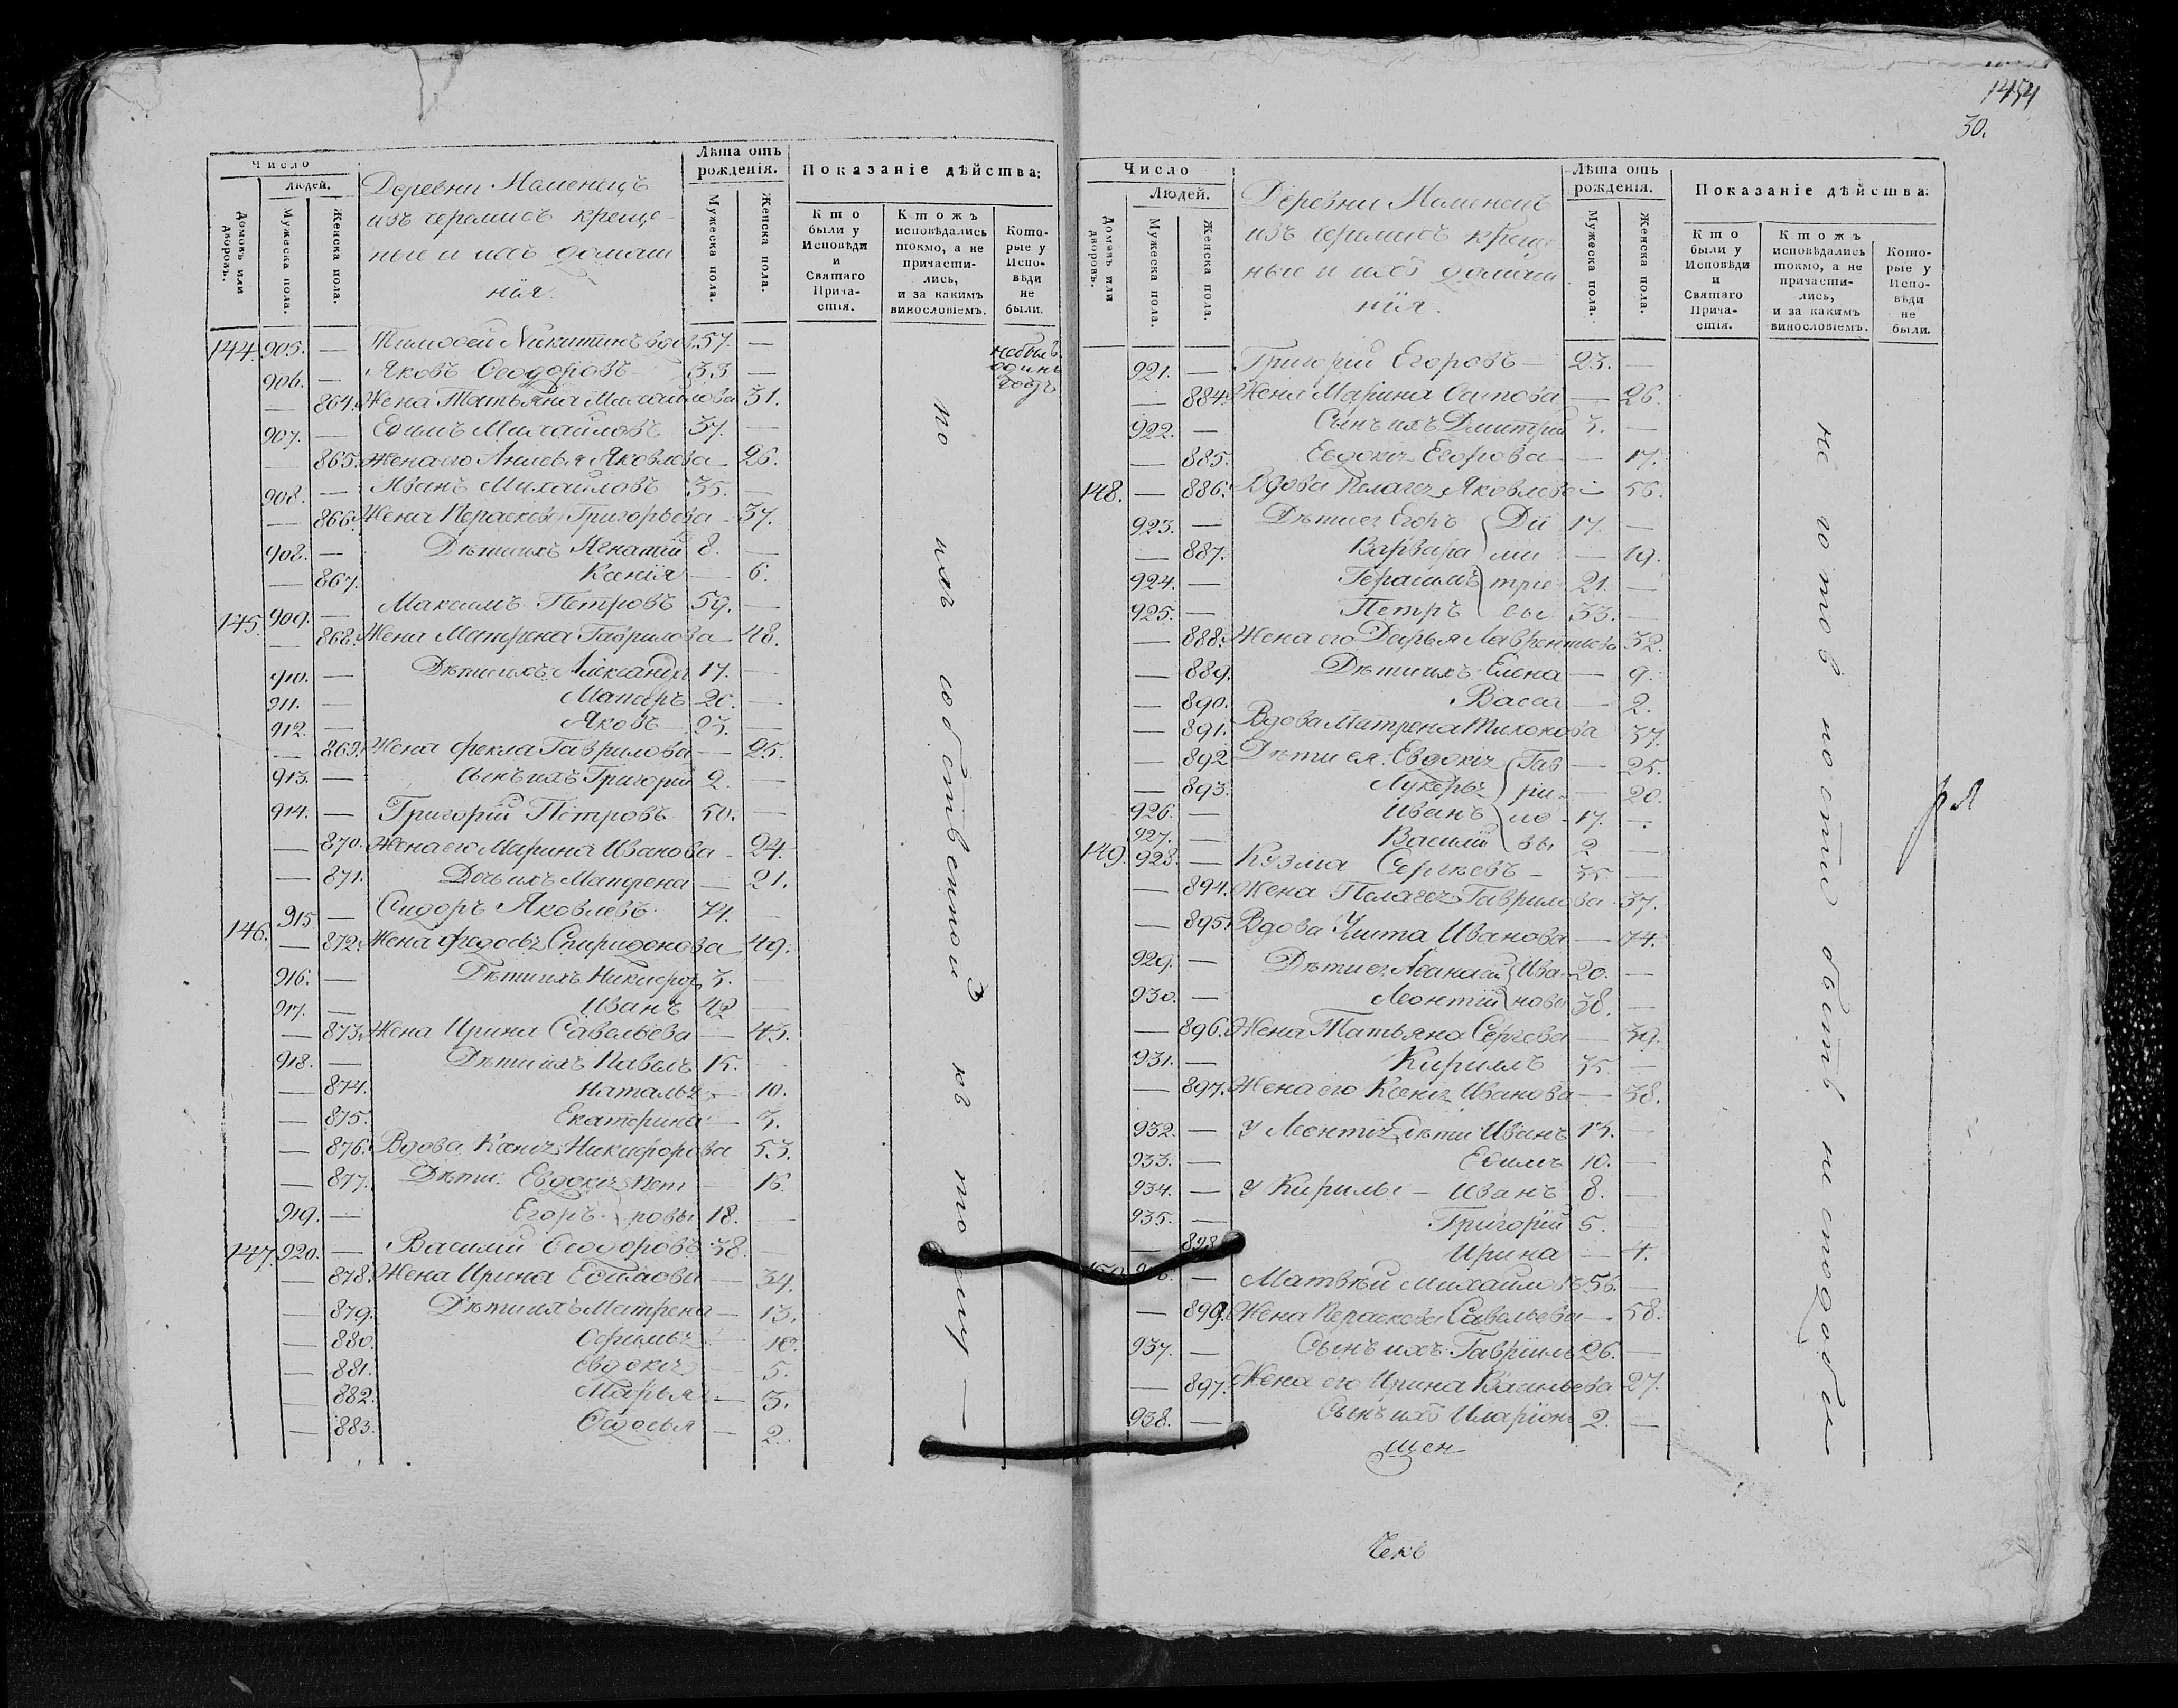 Число
Людей.
Домовъ или дворовъ.
Мужеска пола.
Женска пола.
Деревни Маменецъ
изъ черемисъ креще-
ные и ихъ домаш
нія.
Лѣта отъ рожденія.
Мужеска пола.
Женска пола.
Показаніе дѣйства:
Кто были у Исповѣди и Святаго Причастія.
Ктожъ исповѣдались токмо, а не причастились, и за какимъ винословіемъ.
Которые у Исповѣди не были.
144. 905. — Тимоѳей Никитинъ 57. — небылъ одинъ годъ
906. — Яковъ Ѳеодоровъ 33 —
— 864. Жена Татьяна Михаилова 31.
907. — Еѳимъ Михаиловъ 37. —
— 865. Жена его Анисья Яковлева — 26.
908. — Иванъ Михаиловъ 35. —
— 866. Жена Пераскева Григорьева — 37.
908. — Дѣти ихъ Игнатій 8. —
— 867. Ксенія — 6.
145. 909. — Максимъ Петровъ 59. —
— 868. Жена Матрена Гаврилова — 48.
910. — Дѣти ихъ Александръ 17. —
911. — Макаръ 20. —
912. — Яковъ 23. —
— 869. Жена Фекла Гаврилова — 25.
913. — Сынъ ихъ Григорій 2. —
914. — Григорій Петровъ 50. —
— 870. Жена его Марина Иванова — 24.
— 871. Дочь ихъ Матрена — 21.
146. 915. — Сидоръ Яковлевъ 74. —
— 872. Жена Федосья Спиридонова — 49.
916. — Дѣти ихъ Никифоръ 3. —
917. — Иванъ 42 —
— 873. Жена Ирина Савельева — 43.
918. — Дѣти ихъ Павелъ 15. —
— 874. Наталья — 10.
— 875. Екатерина — 3.
— 876. Вдова Ксенія Никифорова 53.
— 877. Дѣти: Евдокія Пет — 16.
919. — Егоръ ровы 18. —
147. 920. — Василій Ѳеодоровъ 38. —
— 878. Жена Ирина — 34.
— 879. Дѣти ихъ Матрена — 13.
— 880. Офимья — 10.
— 881. Евдокія 5.
— 882. Марья — 3.
— 883. Ѳедосья — 2.
по ихъ собственной къ тому —
1454
30.
Число
Людей.
Домовъ или дворовъ.
Мужеска пола.
Женска пола.
Деревни Маменецъ
изъ черемисъ креще
ные и ихъ домаш
нія.
Лѣта отъ рожденія.
Мужеска пола.
Женска пола.
Показаніе дѣйства:
Кто были у Исповѣди и Святаго Причастія.
Ктожъ исповѣдались токмо, а не причастились, и за какимъ винословіемъ.
Которые у Исповѣди не были.
921. — Григорій Егоровъ — 23. —
— 884. Жена Марина Осипова — 26.
922. — Сынъ ихъ Дмитрій 3. —
— 885. Евдокія Егорова — 17.
148. — 886. Вдова Пелагея Яковлева — 56.
923. — Дѣти ея Егоръ Ди 17. —
— 887. Варвара ми — 19.
924. — Герасимъ трие 21. —
925. — Петръ вы 33. —
— 888. Жена его Дарья Лаврентьева 32.
— 889. Дѣти ихъ Елена — 9.
— 890. Васса — 2.
— 891. Вдова Матрена Тихонова 37.
— 892 Дѣти ея: Евдокія Гав — 25.
— 893. Лукерья ри — 20.
926. — Иванъ ло 17. —
927. — Василій вы 2. —
149. 928. — Кузма Сергѣевъ — 35. —
— 894. Жена Пелагея Гаврилова 37.
— 895. Вдова Улита Иванова — 74.
929. — Дѣти ея Аѳанасій Ива 20. —
930. — Леонтій новы 38. —
— 896. Жена Татьяна Сергеева — 39.
931. — Кирилъ 35. —
— 897. Жена его Ксенія Иванова — 38.
932. — У Леонтія дѣти Иванъ 13. —
933. — Еѳимъ 10. —
934. — У Кирилы — Иванъ 8. —
935. — Григорій 5. —
— 898 Ирина — 4.
— Матвѣй Михаиловъ 56. —
— 899. Жена Пераскева Савельева — 58.
937. — Сынъ ихъ Гавріилъ 26. —
— 897. Жена его Ирина Васильева 27.
938. — Сынъ ихъ Иларіонъ 2. —
не готовности быть и сподобле